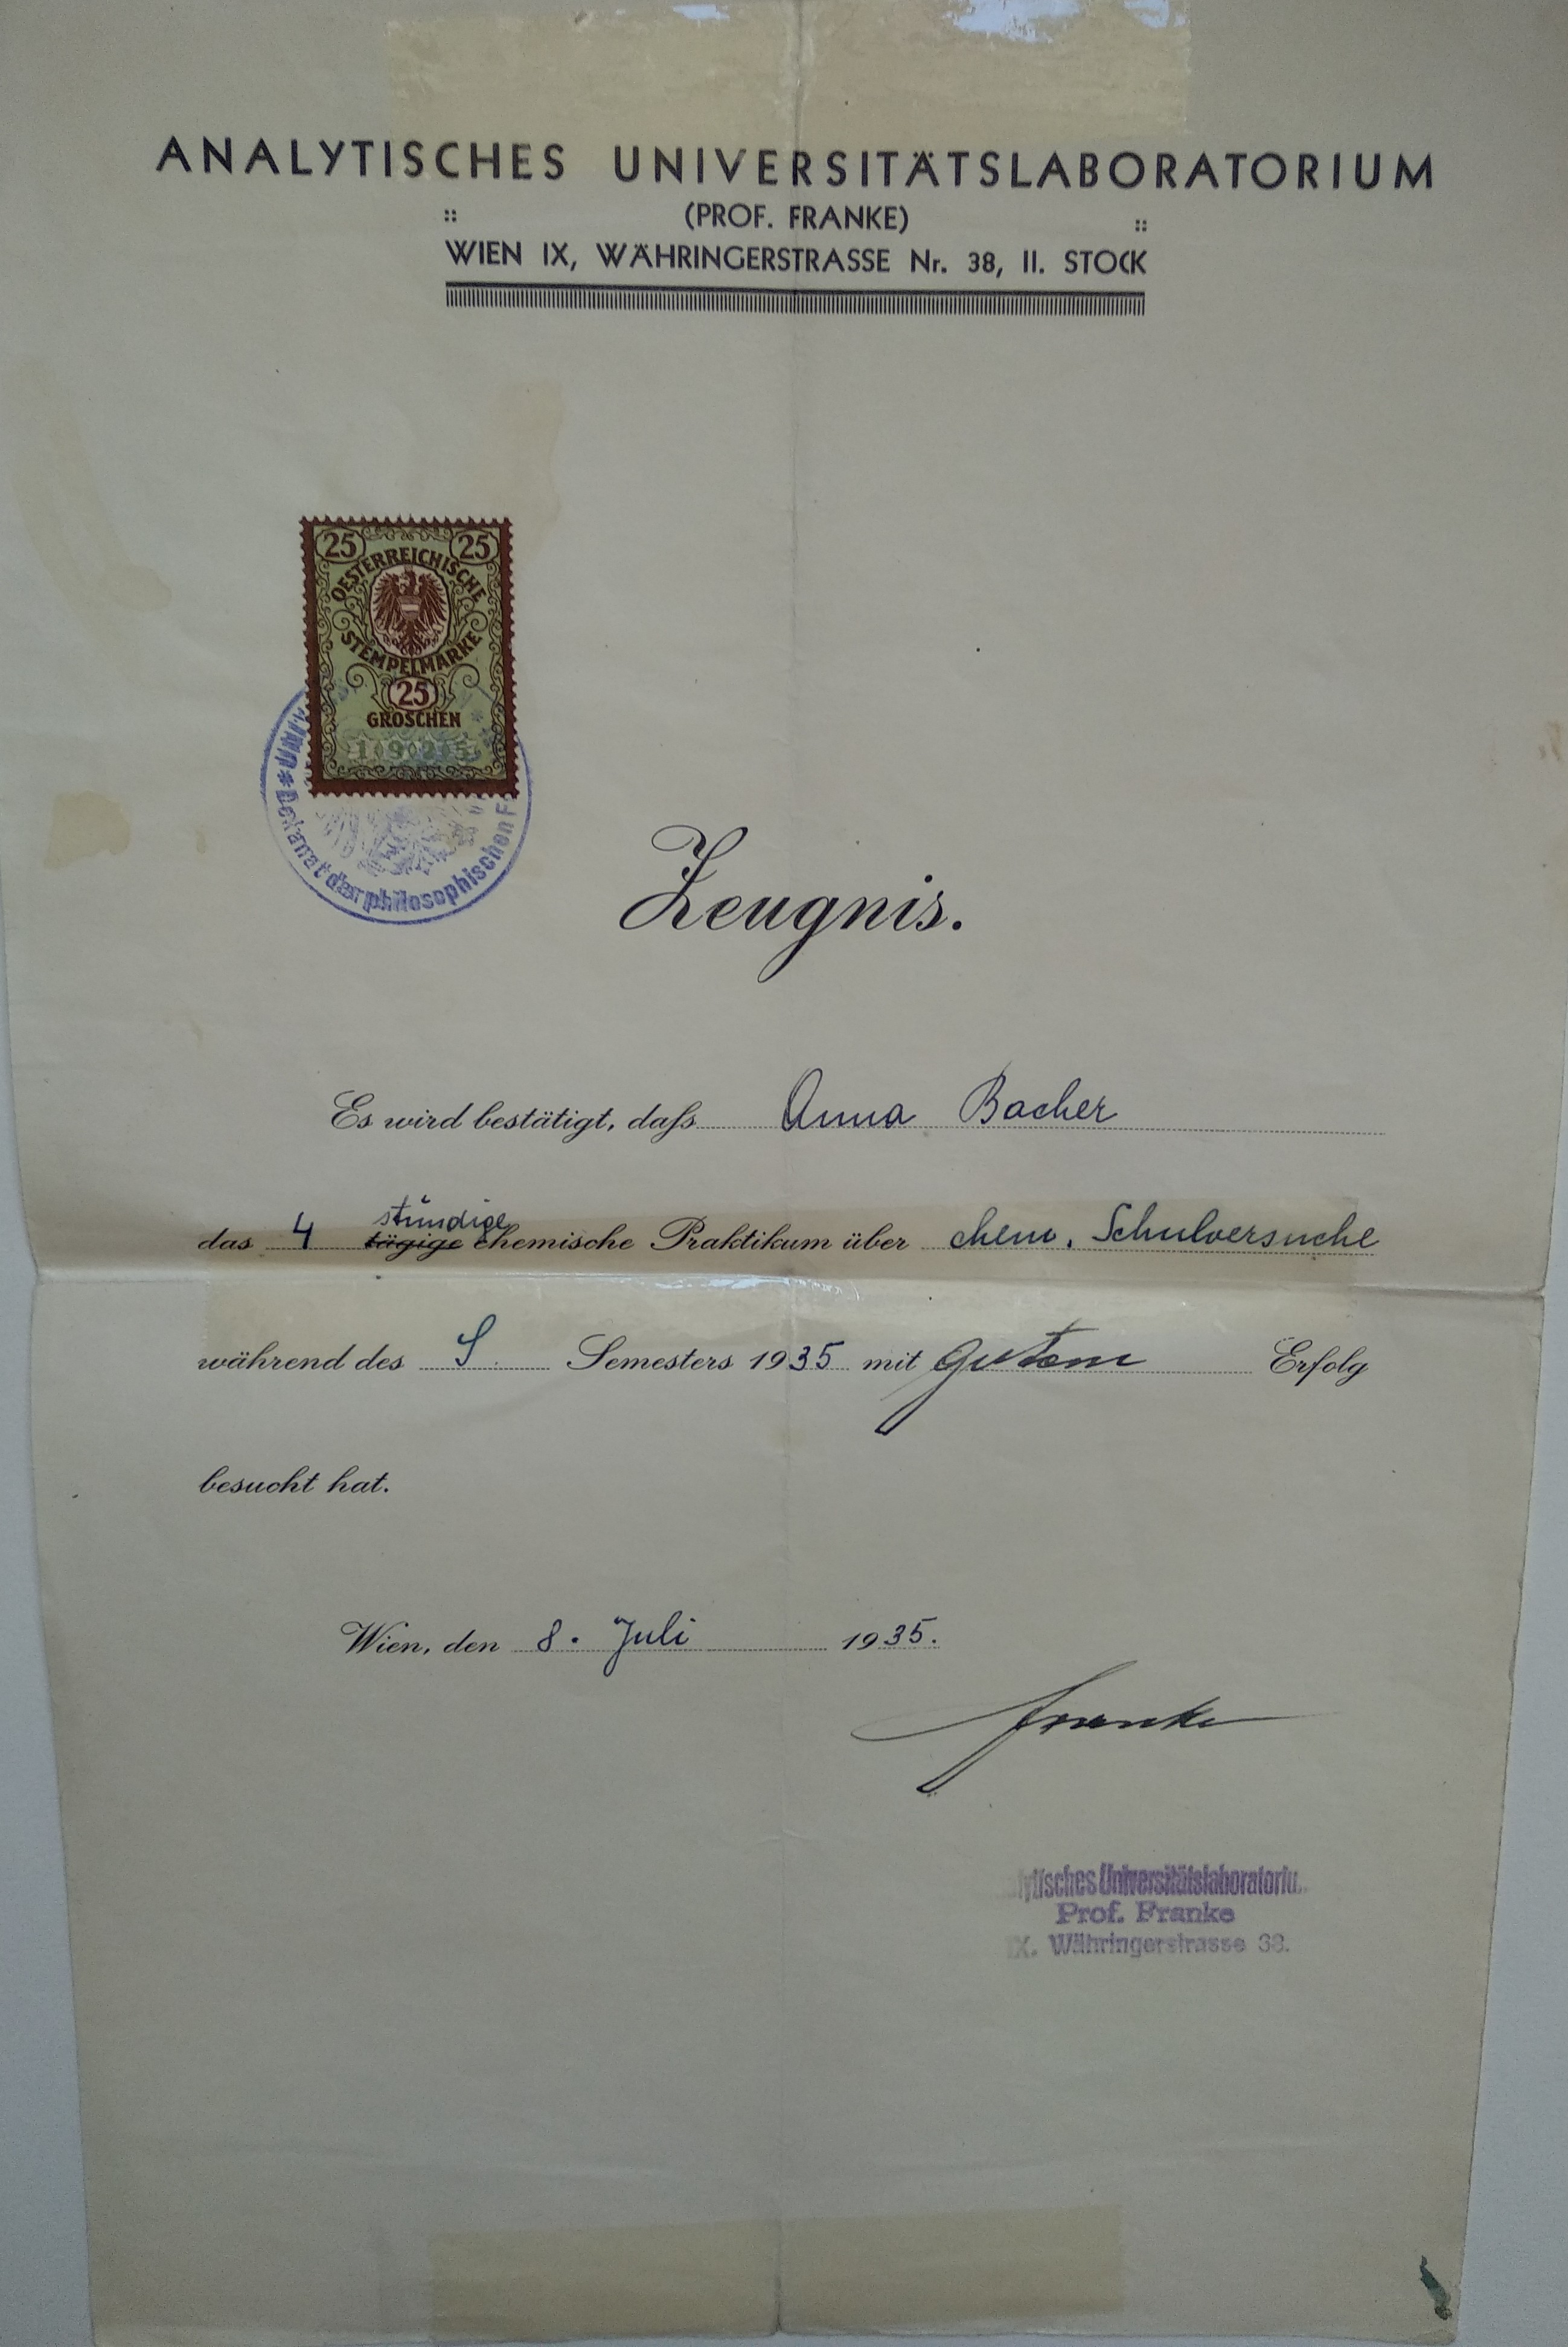 ANALYTISCHES UNIVERSITÄTSLABORATORIUM
(PROF. FRANKE)
WIEN IX, WÄHRINGERSTRASSE Nr. 38, II. STOCK
25 25
OESTERREICHISCHE
STEMPELMARKE
25
GROSCHEN
1925
Dekanat der philosophischen F
Zeugnis.
Es wird bestätigt, daſs Anna Bacher
stündige
das 4 tägige chemische Praktikum über chem. Schulversuche
während des S. Semesters 1935 mit gutem Erfolg
besucht hat.
Wien, den 8. Juli 1935.
Franke
lytisches Universitätslaboratoriu
Prof. Franke
IX. Währingerstrasse 38.